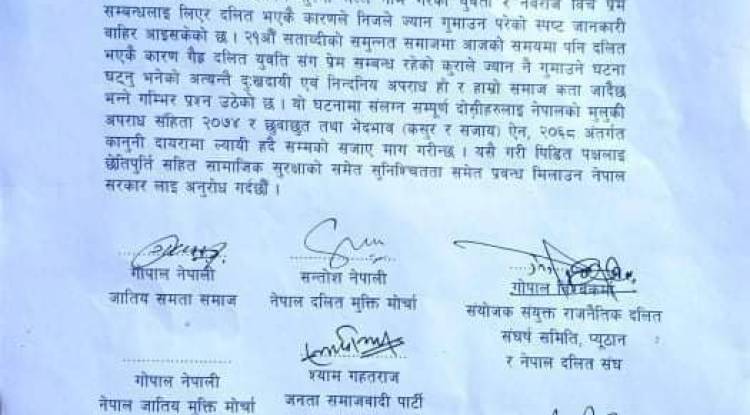 युवती र नवराज विच प्रेम
सम्बन्धलाई लिएर दलित भएकै कारणले निजले ज्यान गुमाउन परेको स्पष्ट जानकारी
वाहिर आइसकेको छ । २१औं सताब्दीको समुन्नत समाजमा आजको समयमा पनि दलित
भएकै कारण गैह्र दलित युवति संग प्रेम सम्बन्ध रहेको कुराले ज्यान नै गुमाउने घटना
घट्नु भनेको अत्यन्तै दुःखदायी एवं निन्दनिय अपराध हो र हाम्रो समाज कता जादैछ
भन्ने गम्भिर प्रश्न उठेको छ । यो घटनामा संलग्न सम्पूर्ण दोस्रीहरुलाइ नेपालको मुलुकी
अपराध संहिता २०७४ र छुवाछुत तथा भेदभाव (कसुर र सजाय) ऐन, २०६८ अंतर्गत
कानुनी दायरामा ल्यायी हदै सम्मको सजाए माग गरीन्छ । यसै गरी पिडित पक्षलाइ
छेतिपुर्ति सहित सामाजिक सुरक्षाको समेत सुनिश्चितता समेत प्रबन्ध मिलाउन नेपाल
सरकार लाइ अनुरोध गर्दछौं ।
गोपाल नेपाली
जातिय समता समाज
सन्तोश नेपाली
नेपाल दलित मुक्ति मोर्चा
गोपाल विश्वकर्मा
संयोजक संयुक्त राजनैतिक दलित
संघर्ष समिति, प्यूठान
र नेपाल दलित संघ
गोपाल नेपाली
नेपाल जातिय मुक्ति मोर्चा
श्याम गहतराज
जनता समाजवादी पार्टी